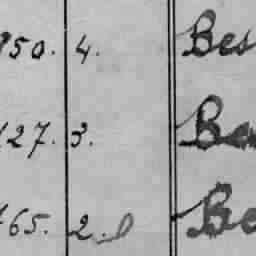 950. 4. Bes
127. 3. Be
165. 2. Be